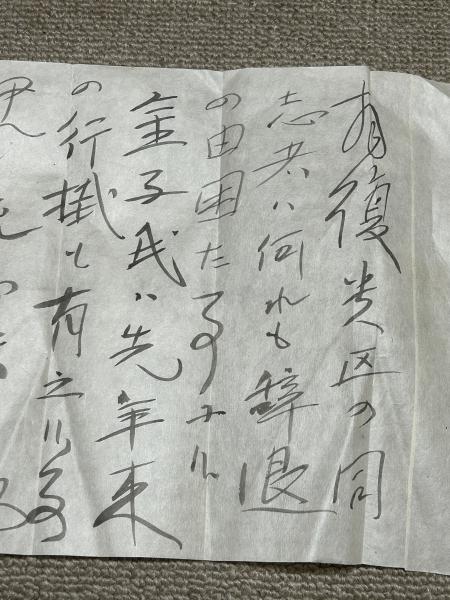 拝復貴区の同
志共ハ何れも辞退
の由困た事ナル
金子氏ハ先年来
の行掛も有之